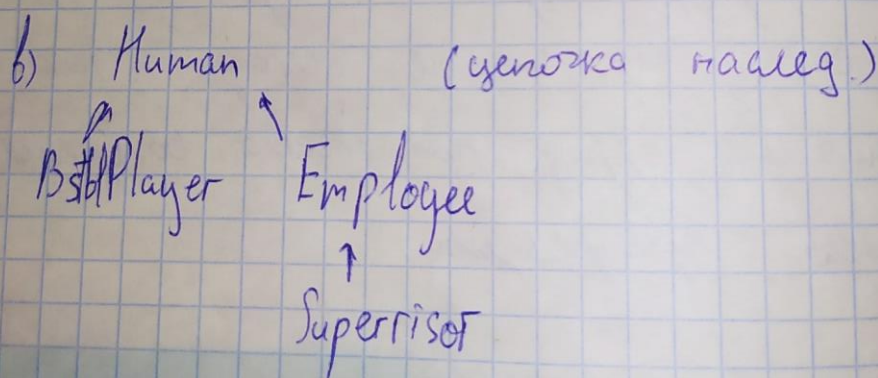 в) Human (цепочка наслед.)
BsblPlayer Employee
Supervisor